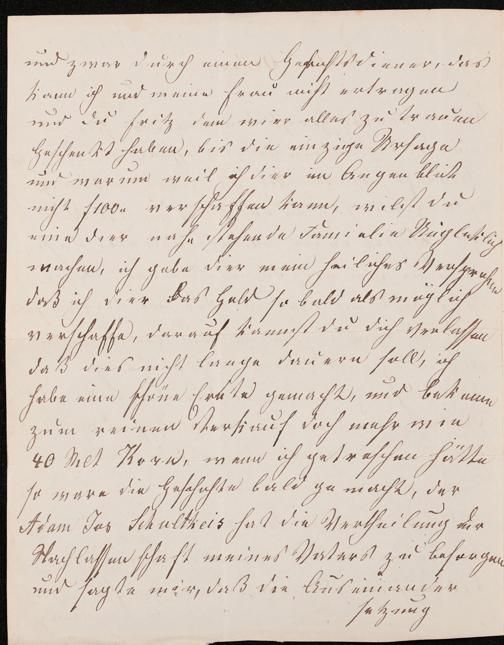 und zwar durch einen Gerichtsdiener, das
kann ich und meine Frau nicht ertragen
und du Fritz dem wier alles zu trauen
geschenkt haben, bis die einzige Ursage
und warum weil ich dier im Augenblick
nicht f100. verschaffen kann, wilst du
eine dier nahe stehende Familie Unglücklig
machen, ich gebe dier mein heiliges Versprechen
daß ich dier das Geld so bald als möglich
verschaffe, darauf kannst du dich verlassen
daß dies nicht lange dauern soll, ich
habe eine schöne Ernte gemacht, und bekomme
zum reinen Verkauf doch mehr wie
40 Mlt Korn, wenn ich getroschen hätte
so ware die Geschichte bald gemacht, der
Adam Jos Schultheis hat die Vertheilung der
Nachlassenschaft meines Vaters zu besorgen
und sagte mir, daß die Auseinander
setzung